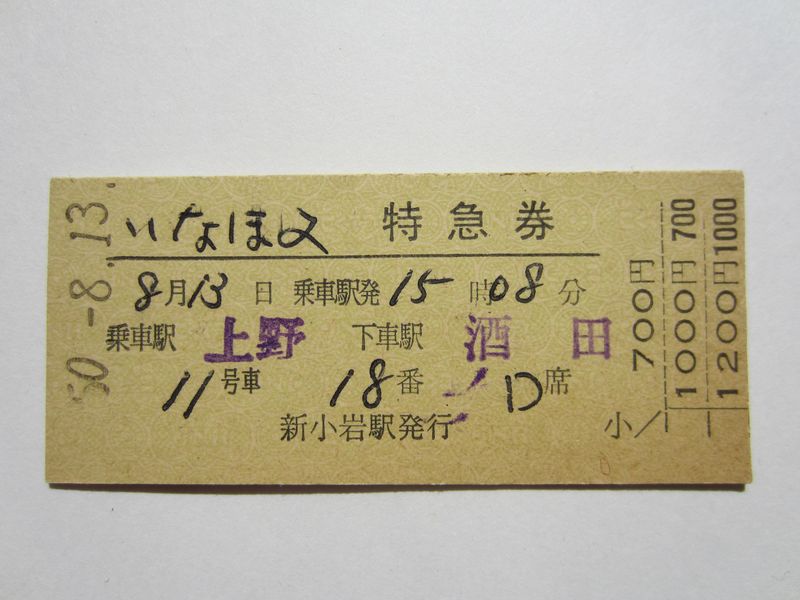 50.-8.13.
いなほ2 特急券
8月13日 乗車駅発 15時08分
乗車駅 上野 下車駅 酒田
11号車 18番 D席
新小岩駅発行
小
700円
1000円 700
1200円 1000